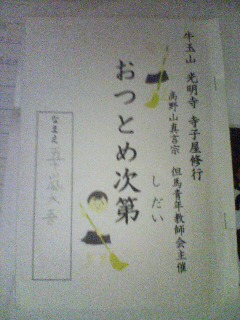 牛玉山 光明寺 寺子屋修行
高野山真言宗 但馬青年教師会主催
おつとめ次第
しだい
なまえ